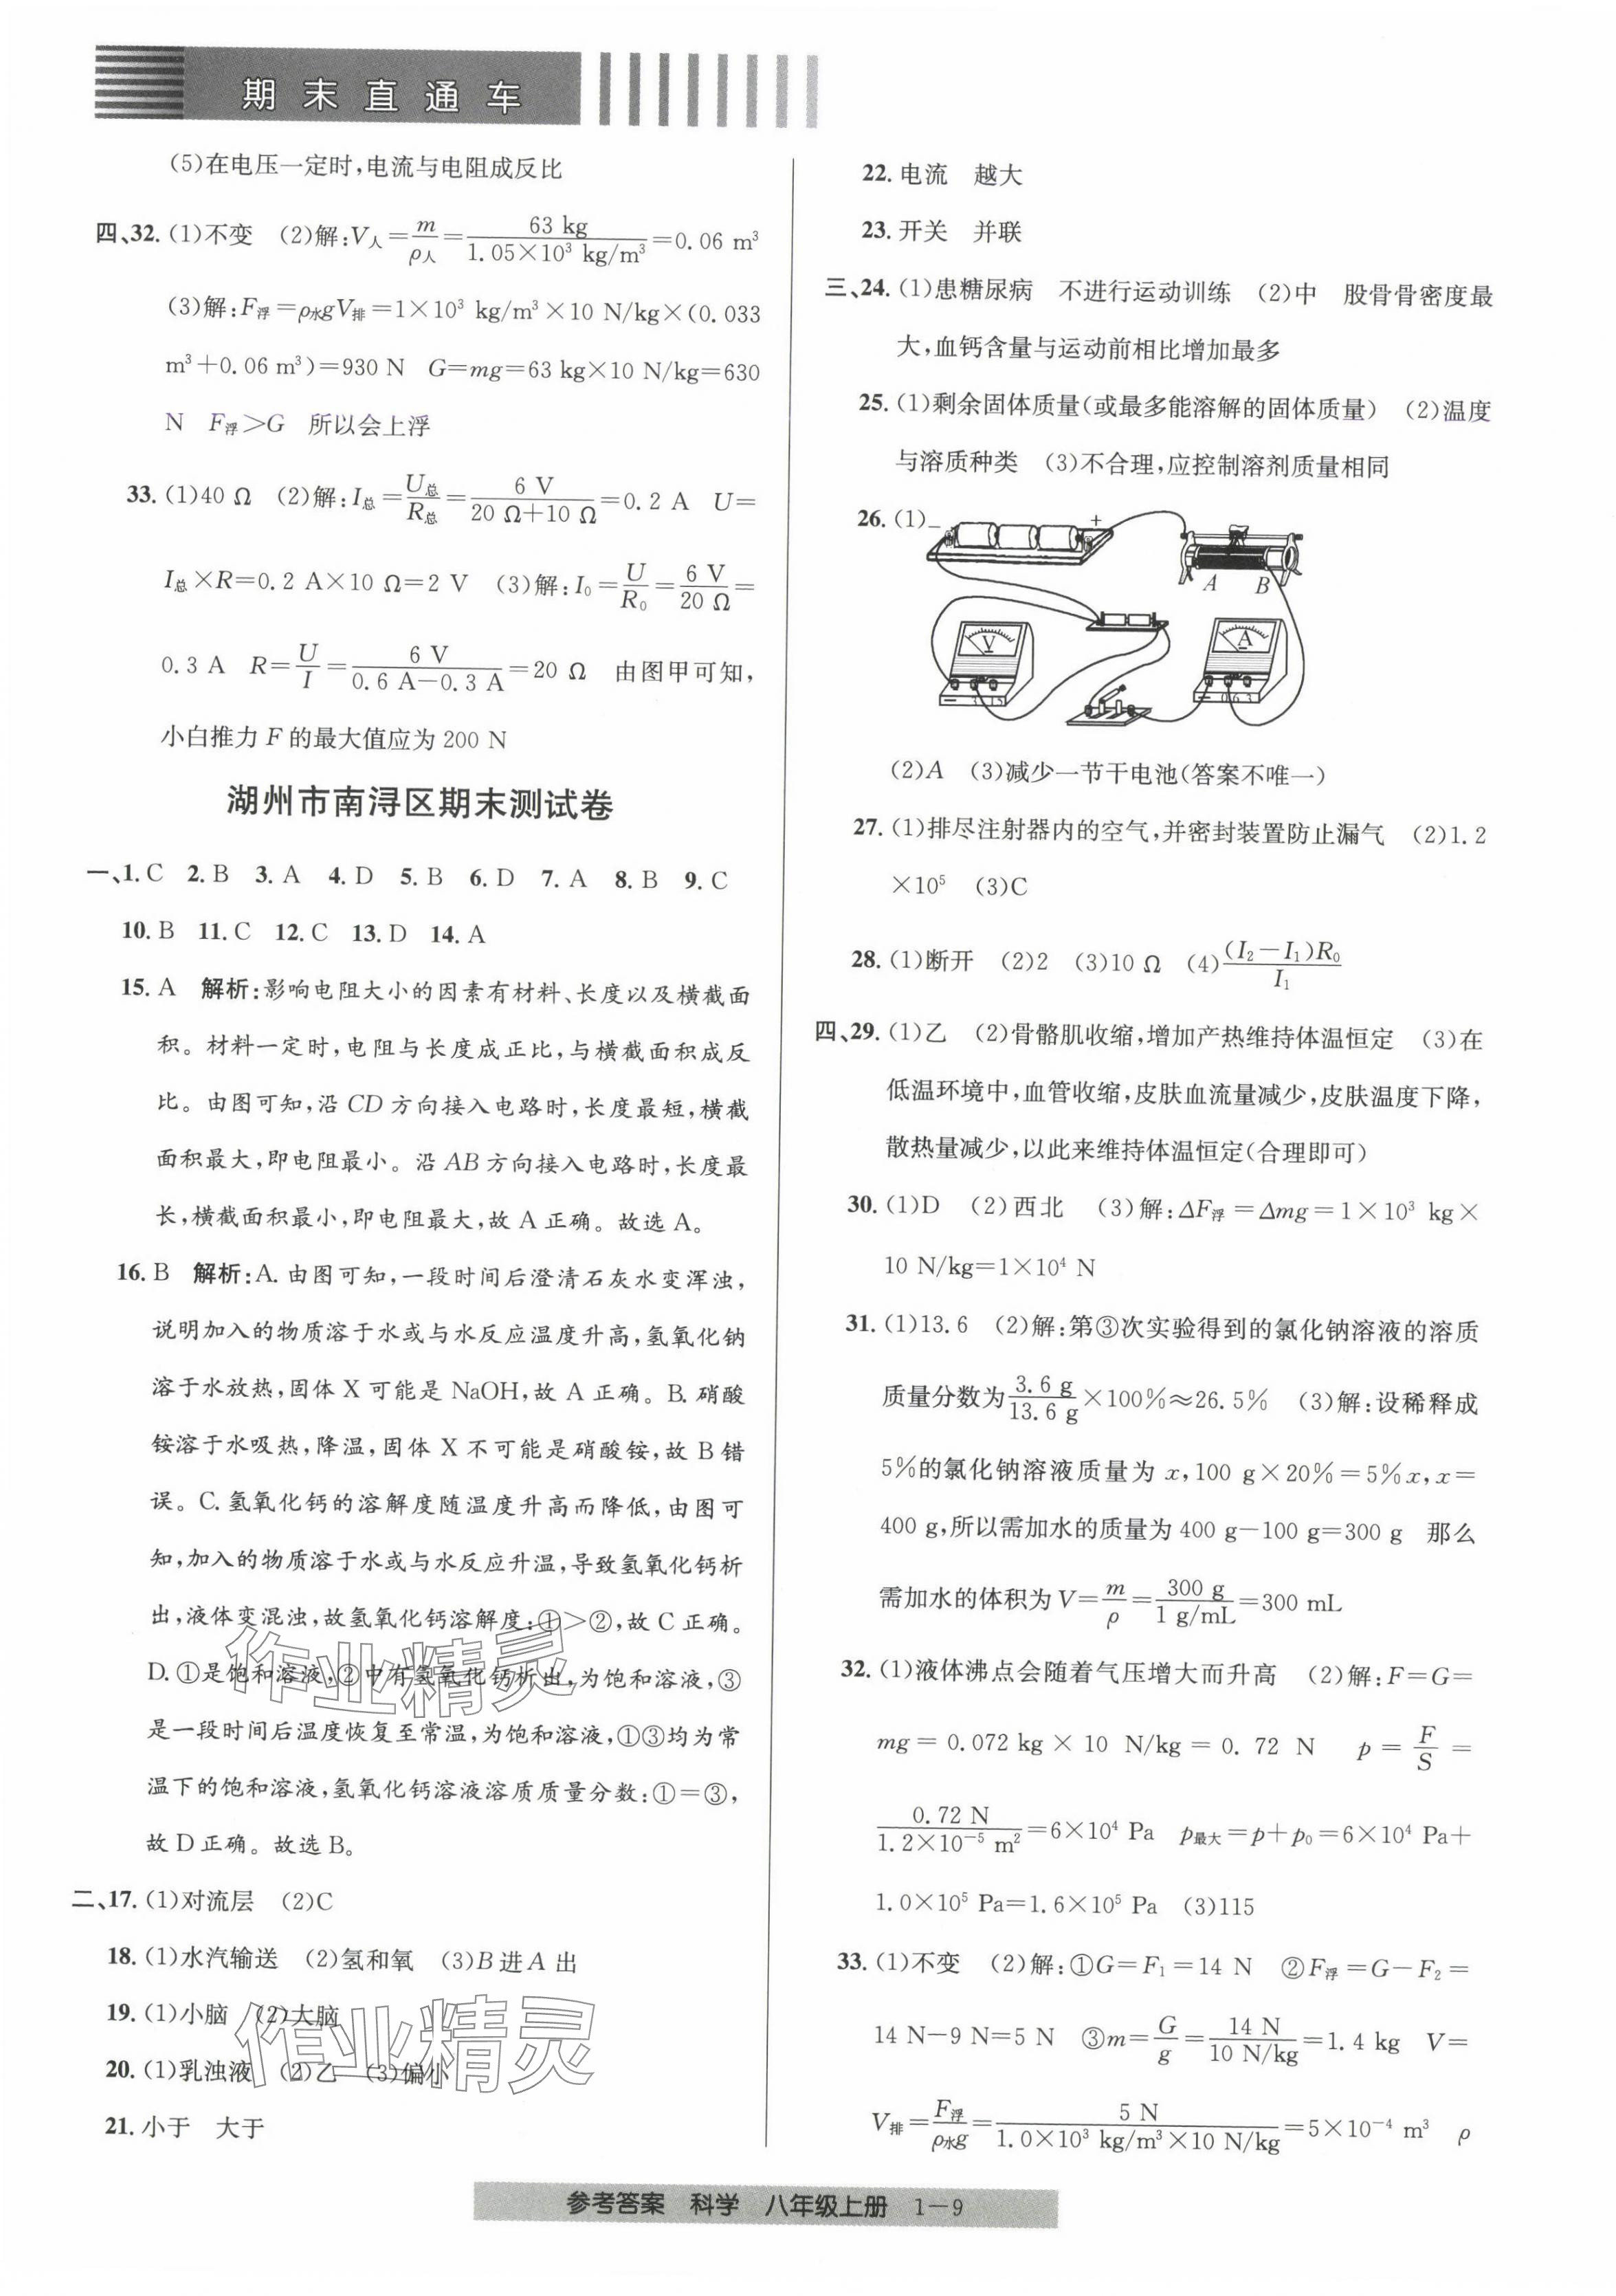 期末直通车
(5)在电压一定时,电流与电阻成反比
四、32. (1)不变 (2)解:V人=m/ρ人=63 kg/1.05×10³ kg/m³=0.06 m³
(3)解:F浮=ρ水gV排=1×10³ kg/m³×10 N/kg×(0.033
m³+0.06 m³)=930 N G=mg=63 kg×10 N/kg=630
N F浮>G 所以会上浮
33. (1)40 Ω (2)解:I总=U总/R总=6 V/20 Ω+10 Ω=0.2 A U=
I总×R=0.2 A×10 Ω=2 V (3)解:I₀=U/R₀=6 V/20 Ω=
0.3 A R=U/I=6 V/0.6 A-0.3 A=20 Ω 由图甲可知,
小白推力 F 的最大值应为 200 N
湖州市南浔区期末测试卷
一、1. C 2. B 3. A 4. D 5. B 6. D 7. A 8. B 9. C
10. B 11. C 12. C 13. D 14. A
15. A 解析:影响电阻大小的因素有材料、长度以及横截面
积。材料一定时,电阻与长度成正比,与横截面积成反
比。由图可知,沿 CD 方向接入电路时,长度最短,横截
面积最大,即电阻最小。沿 AB 方向接入电路时,长度最
长,横截面积最小,即电阻最大,故 A 正确。故选 A。
16. B 解析:A. 由图可知,一段时间后澄清石灰水变浑浊,
说明加入的物质溶于水或与水反应温度升高,氢氧化钠
溶于水放热,固体 X 可能是 NaOH,故 A 正确。B. 硝酸
铵溶于水吸热,降温,固体 X 不可能是硝酸铵,故 B 错
误。C. 氢氧化钙的溶解度随温度升高而降低,由图可
知,加入的物质溶于水或与水反应升温,导致氢氧化钙析
出,液体变混浊,故氢氧化钙溶解度:①>②,故 C 正确。
D. ①是饱和溶液,②中有氢氧化钙析出,为饱和溶液,③
是一段时间后温度恢复至常温,为饱和溶液,①③均为常
温下的饱和溶液,氢氧化钙溶液溶质质量分数:①=③,
故 D 正确。故选 B。
二、17. (1)对流层 (2)C
18. (1)水汽输送 (2)氢和氧 (3)B 进 A 出
19. (1)小脑 (2)大脑
20. (1)乳浊液 (2)乙 (3)偏小
21. 小于 大于
作业精灵
作业精灵
22. 电流 越大
23. 开关 并联
三、24. (1)患糖尿病 不进行运动训练 (2)中 股骨骨密度最
大,血钙含量与运动前相比增加最多
25. (1)剩余固体质量(或最多能溶解的固体质量) (2)温度
与溶质种类 (3)不合理,应控制溶剂质量相同
26. (1)
− +
A B
V A
3 15
0.6 3
(2)A (3)减少一节干电池(答案不唯一)
27. (1)排尽注射器内的空气,并密封装置防止漏气 (2)1.2
×10⁵ (3)C
28. (1)断开 (2)2 (3)10 Ω (4)(I₂-I₁)R₀/I₁
四、29. (1)乙 (2)骨骼肌收缩,增加产热维持体温恒定 (3)在
低温环境中,血管收缩,皮肤血流量减少,皮肤温度下降,
散热量减少,以此来维持体温恒定(合理即可)
30. (1)D (2)西北 (3)解:ΔF浮=Δmg=1×10³ kg×
10 N/kg=1×10⁴ N
31. (1)13.6 (2)解:第③次实验得到的氯化钠溶液的溶质
质量分数为3.6 g/13.6 g×100%≈26.5% (3)解:设稀释成
5%的氯化钠溶液质量为 x,100 g×20%=5%x,x=
400 g,所以需加水的质量为 400 g-100 g=300 g 那么
需加水的体积为 V=m/ρ=300 g/1 g/mL=300 mL
32. (1)液体沸点会随着气压增大而升高 (2)解:F=G=
mg=0.072 kg×10 N/kg=0.72 N p=F/S=
0.72 N/1.2×10⁻⁵ m²=6×10⁴ Pa p最大=p+p₀=6×10⁴ Pa+
1.0×10⁵ Pa=1.6×10⁵ Pa (3)115
33. (1)不变 (2)解:①G=F₁=14 N ②F浮=G-F₂=
14 N-9 N=5 N ③m=G/g=14 N/10 N/kg=1.4 kg V=
V排=F浮/ρ水g=5 N/1.0×10³ kg/m³×10 N/kg=5×10⁻⁴ m³ ρ
参考答案 科学 八年级上册 1-9